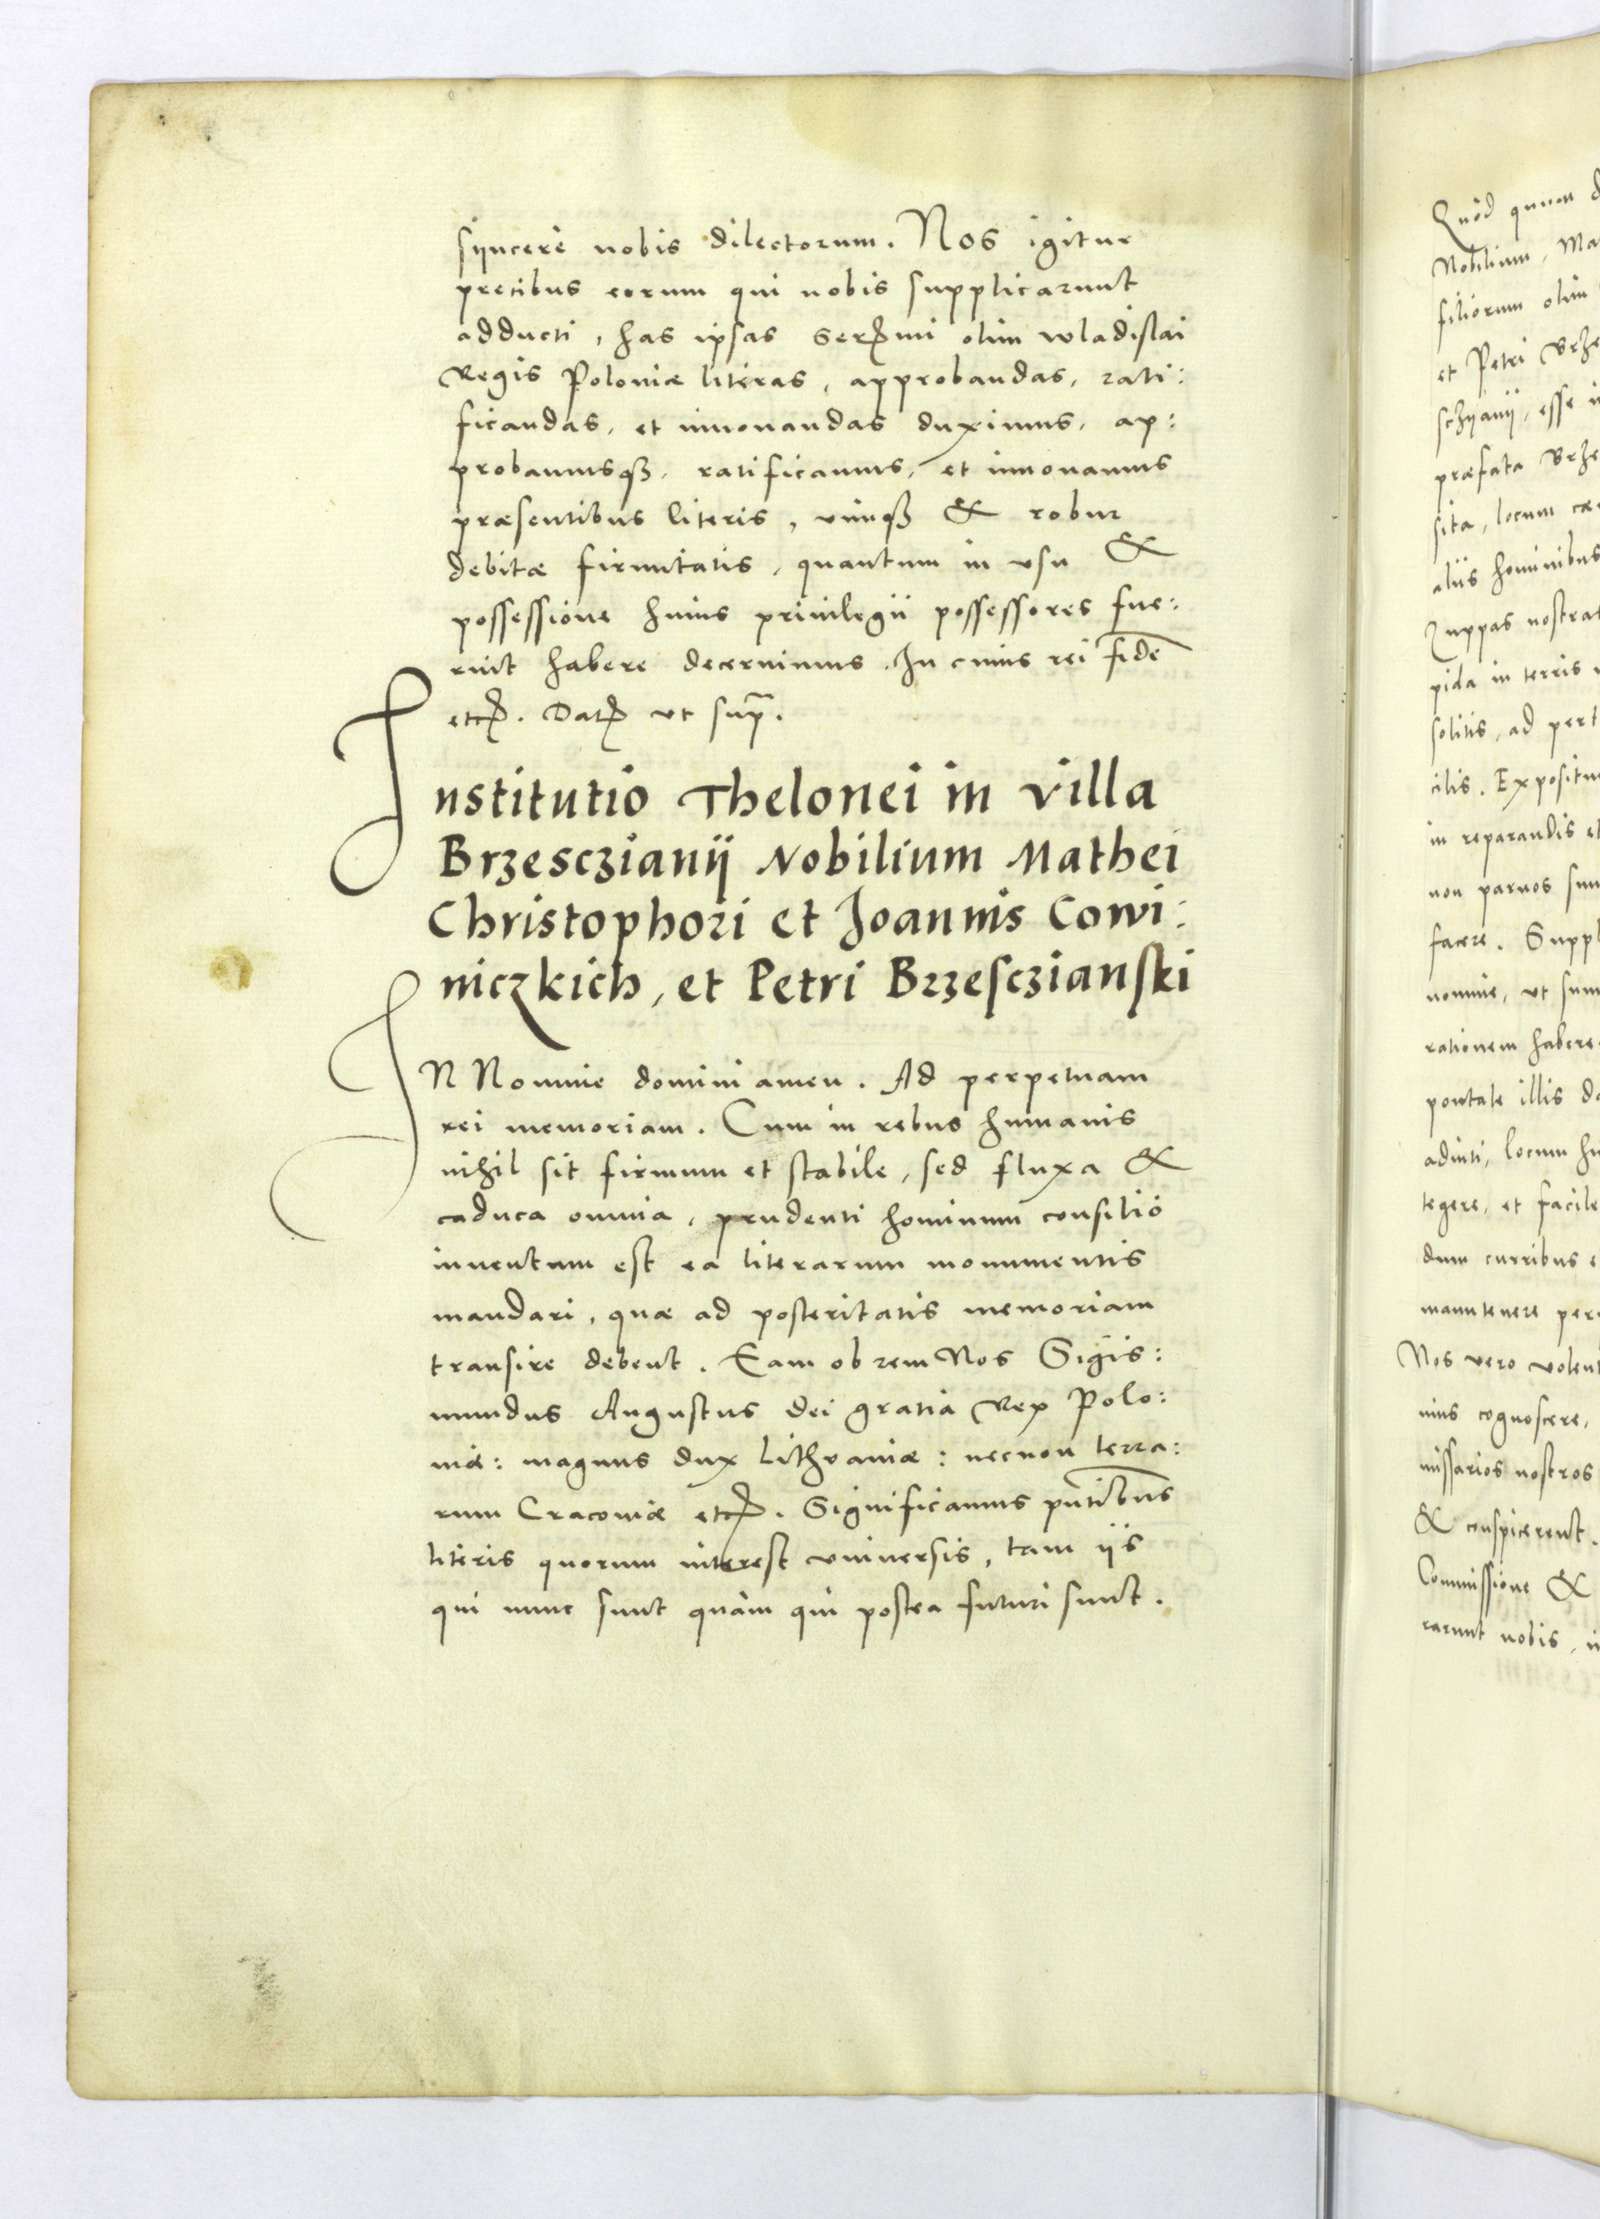 sijncere nobis dilectorum. Nos igitur
precibus eorum qui nobis supplicarunt
adducti, has ipsas Serꝫmi olim wladislai
Regis Poloniæ literas, approbandas, rati:
ficandas, et innouandas duximus, ap:
probamusqꝫ, ratificamus, et innouamus
præsentibus literis, vimqꝫ & robur
debitæ firmitatis, quantum in vsu &
possessione huius priuilegii possessores fue:
rint habere decernimus. In cuius rei fidē
etcꝫ. Datꝫ ut supꝛ̄.
Institutio Thelonei in villa
Brzesczianij Nobilium Mathei
Christophori et Joannis Cowi:
niczkich, et Petri Brzesczianski
IN Nomine domini amen. Ad perpetuam
rei memoriam. Cum in rebus humanis
nihil sit firmum et stabile, sed fluxa &
caduca omnia, prudenti hominum consilio
inuentum est ea literarum monumentis
mandari, quæ ad posteritatis memoriam
transire debent. Eam ob rem Nos Sigis:
mundus Augustus dei gratia Rex Polo:
niæ: magnus dux Lithvaniæ: necnon terra:
rum Cracoviæ etcꝫ. Significamus pn̄tibus
literis quorum interest vniuersis, tam iis
qui nunc sunt quàm qui postea futuri sunt.
Quòd quum
Nobilium, Ma
filiorum olim
et Petri Brze
schijanij, esse
præfata Brze
sita, locum
aliis hominibus
Zuppas nostra
pida in terris
solitis, ad per
cilis. Expositu
in reparandis et
non paruos sum
facere. Suppl
nomine, ut sum
rationem habere
pontale illis
aduti, locum hu
tegere, et facile
dum curribus
manutenere per
Nos vero volen
nius cognoscere,
missarios nostros
& conspicerent.
Commissione &
rarunt nobis,